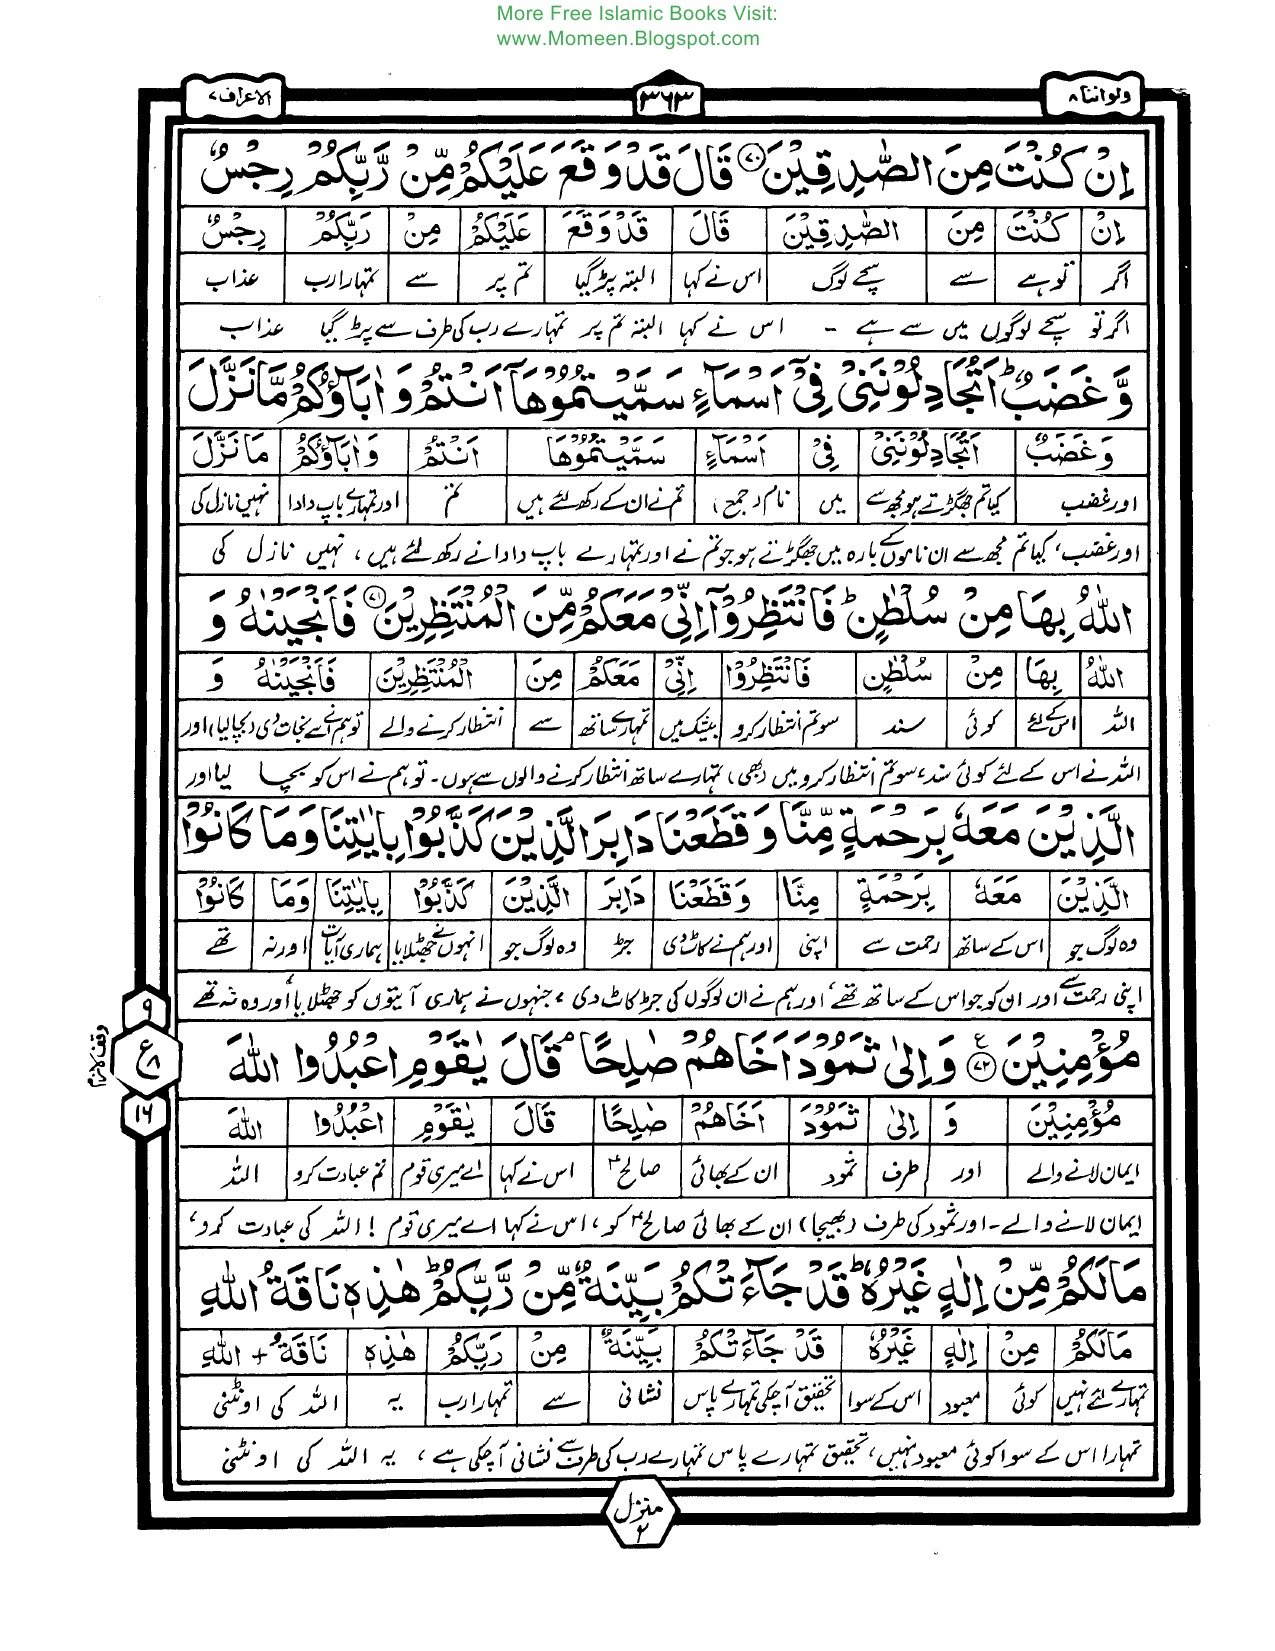 More Free Islamic Books Visit:
www.Momeen.Blogspot.com
ولواننا ۸
۳۶۳
الاعراف ۷
اِنْ كُنْتَ مِنَ الصّٰدِقِيْنَ ۷۰ قَالَ قَدْ وَقَعَ عَلَيْكُمْ مِّنْ رَّبِّكُمْ رِجْسٌ
اِنْ كُنْتَ مِنَ الصّٰدِقِيْنَ قَالَ قَدْ وَقَعَ عَلَيْكُمْ مِنْ رَبِّكُمْ رِجْسٌ
اگر تو ہے سے سچے لوگ اس نے کہا البتہ پڑگیا تم پر سے تمہارا رب عذاب
اگر تو سچے لوگوں میں سے ہے - اس نے کہا البتہ تم پر تمہارے رب کی طرف سے پڑ گیا عذاب
وَّغَضَبٌ ؕ اَتُجَادِلُوْنَنِيْ فِيْۤ اَسْمَآءٍ سَمَّيْتُمُوْهَاۤ اَنْتُمْ وَ اٰبَآؤُكُمْ مَّا نَزَّلَ
وَغَضَبٌ اَتُجَادِلُوْنَنِيْ فِيْ اَسْمَآءٍ سَمَّيْتُمُوْهَا اَنْتُمْ وَاٰبَآؤُكُمْ مَا نَزَّلَ
اور غضب کیا تم جھگڑتے ہو مجھ سے میں نام (جمع) تم نے ان کے رکھ لئے ہیں تم اور تمہارے باپ دادا نہیں نازل کی
اور غضب، کیا تم مجھ سے ان ناموں کے بارہ میں جھگڑتے ہو جو تم نے اور تمہارے باپ دادا نے رکھ لئے ہیں، نہیں نازل کی
اللّٰهُ بِهَا مِنْ سُلْطٰنٍ ؕ فَانْتَظِرُوْۤا اِنِّيْ مَعَكُمْ مِّنَ الْمُنْتَظِرِيْنَ ۷۱ فَاَنْجَيْنٰهُ وَ
اللّٰهُ بِهَا مِنْ سُلْطٰنٍ فَانْتَظِرُوْا اِنِّيْ مَعَكُمْ مِنَ الْمُنْتَظِرِيْنَ فَاَنْجَيْنٰهُ وَ
اللہ اس کے لئے کوئی سند سو تم انتظار کرو بیشک میں تمہارے ساتھ سے انتظار کرنے والے تو ہم نے اسے نجات دی (بچا لیا) اور
اللہ نے اس کے لئے کوئی سند، سو تم انتظار کرو میں (بھی) تمہارے ساتھ انتظار کرنے والوں سے ہوں۔ تو ہم نے اس کو بچا لیا اور
الَّذِيْنَ مَعَهٗ بِرَحْمَةٍ مِّنَّا وَ قَطَعْنَا دَابِرَ الَّذِيْنَ كَذَّبُوْا بِاٰيٰتِنَا وَمَا كَانُوْا
الَّذِيْنَ مَعَهٗ بِرَحْمَةٍ مِنَّا وَ قَطَعْنَا دَابِرَ الَّذِيْنَ كَذَّبُوْا بِاٰيٰتِنَا وَمَا كَانُوْا
وہ لوگ جو اس کے ساتھ رحمت سے اپنی اور ہم نے کاٹ دی جڑ وہ لوگ جو انہوں نے جھٹلایا ہماری آیات اور نہ تھے
اپنی رحمت سے اور ان کو جو اس کے ساتھ تھے، اور ہم نے ان لوگوں کی جڑ کاٹ دی، جنہوں نے ہماری آیتوں کو جھٹلایا، اور وہ نہ تھے
۹
ع ۸
۱۶
وقف لازم
مُؤْمِنِيْنَ ۷۲ ع وَ اِلٰى ثَمُوْدَ اَخَاهُمْ صٰلِحًا م قَالَ يٰقَوْمِ اعْبُدُوا اللّٰهَ
مُؤْمِنِيْنَ وَ اِلٰى ثَمُوْدَ اَخَاهُمْ صٰلِحًا قَالَ يٰقَوْمِ اعْبُدُوا اللّٰهَ
ایمان لانے والے اور طرف ثمود ان کے بھائی صالحؑ اس نے کہا اے میری قوم تم عبادت کرو اللہ
ایمان لانے والے۔ اور ثمود کی طرف (بھیجا) ان کے بھائی صالحؑ کو، اس نے کہا اے میری قوم! اللہ کی عبادت کرو،
مَالَكُمْ مِّنْ اِلٰهٍ غَيْرُهٗ ؕ قَدْ جَآءَتْكُمْ بَيِّنَةٌ مِّنْ رَّبِّكُمْ ؕ هٰذِهٖ نَاقَةُ اللّٰهِ
مَالَكُمْ مِنْ اِلٰهٍ غَيْرُهٗ قَدْ جَآءَتْكُمْ بَيِّنَةٌ مِنْ رَبِّكُمْ هٰذِهٖ نَاقَةُ + اللّٰهِ
تمہارے لئے نہیں کوئی معبود اس کے سوا تحقیق آچکی تمہارے پاس نشانی سے تمہارا رب یہ اللہ کی اونٹنی
تمہارا اس کے سوا کوئی معبود نہیں، تحقیق تمہارے پاس تمہارے رب کی طرف سے نشانی آ چکی ہے، یہ اللہ کی اونٹنی
منزل ۲